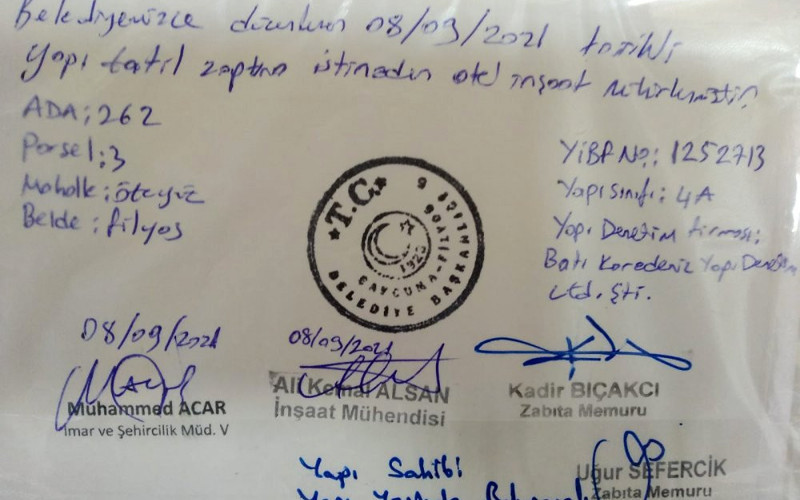 Belediyemizce düzenlenen 08/09/2021 tarihli
Yapı tatil zaptına istinaden otel inşaat mühürlenmiştir.
ADA: 262
Parsel: 3
Mahalle: öteyüz
Belde: filyos
YİBF No: 1252713
Yapı sınıfı: 4A
Yapı Denetim firması:
Batı Karedeniz Yapı Denetim
Ltd. Şti.
T.C.
ÇAYCUMA-FİLYOS
BELEDİYE BAŞKANLIĞI
6
1923
08/09/2021
Muhammed ACAR
İmar ve Şehircilik Müd. V
08/09/2021
Ali Kemal ALSAN
İnşaat Mühendisi
Kadir BIÇAKCI
Zabıta Memuru
Uğur SEFERCİK
Zabıta Memuru
Yapı Sahibi
Yapı